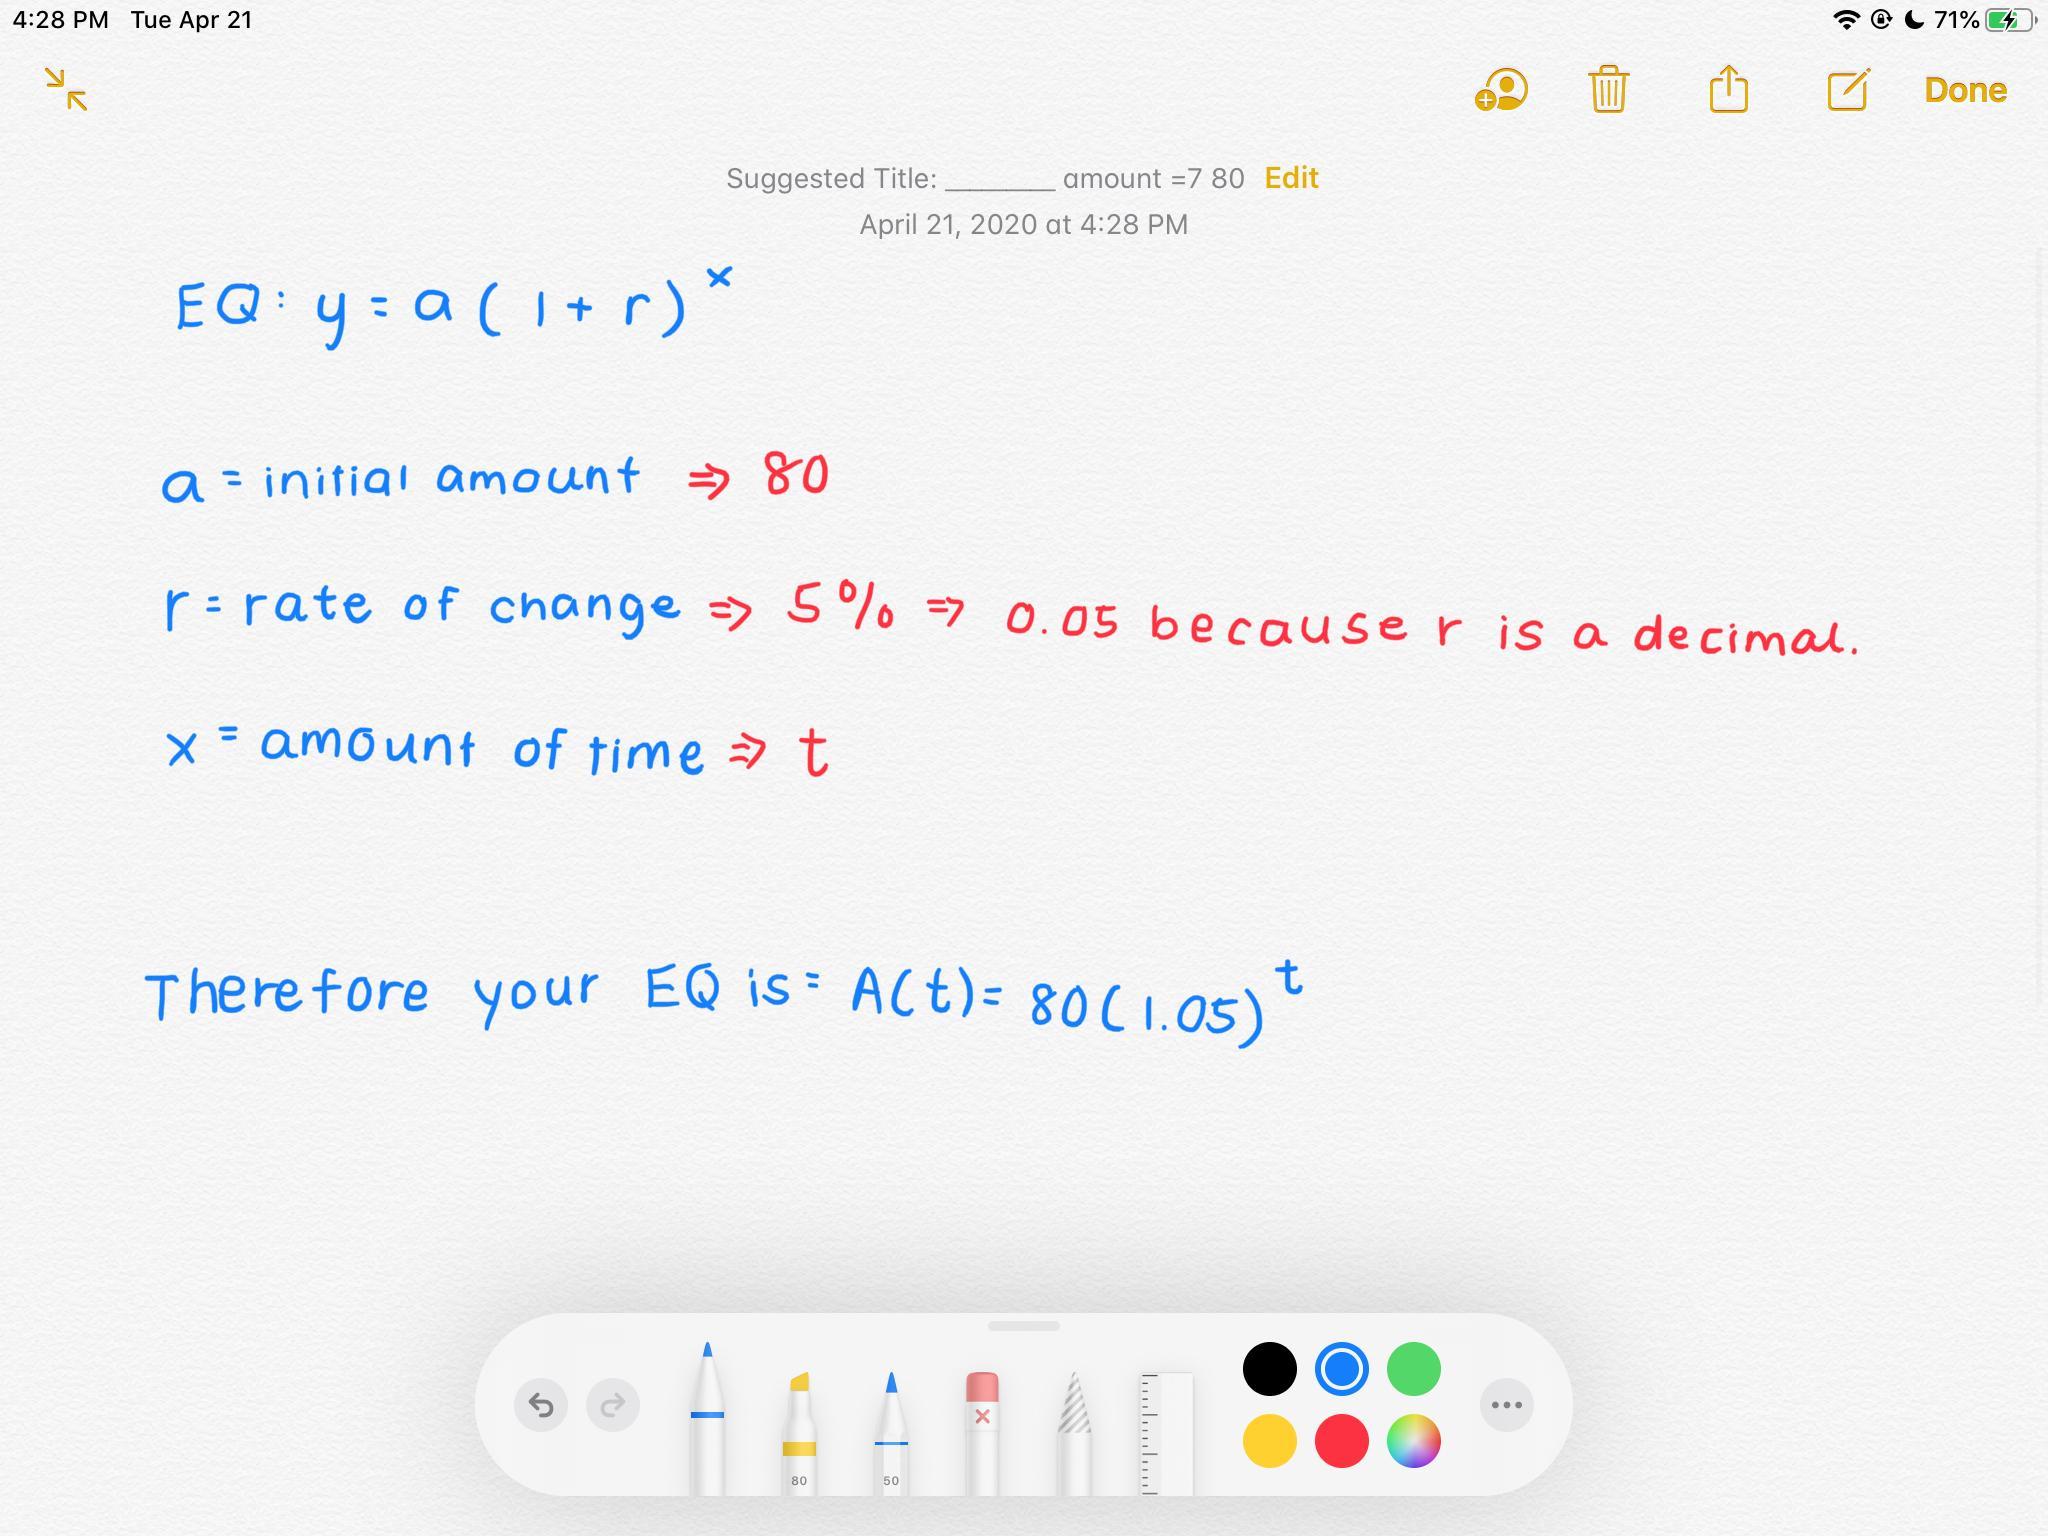 4:28 PM Tue Apr 21 71%
Done
Suggested Title: _________ amount =7 80 Edit
April 21, 2020 at 4:28 PM
EQ: y = a ( 1 + r )ˣ
a = initial amount ⇒ 80
r = rate of change ⇒ 5% ⇒ 0.05 because r is a decimal.
x = amount of time ⇒ t
Therefore your EQ is = A(t) = 80(1.05)ᵗ
80 50